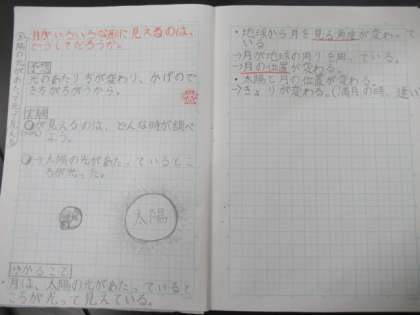 月がいろいろな形に見えるのは、
どうしてだろうか。
予想
光のあたりちが変わり、かげので
きちがちがうから。
実験
が見えるのは、どんな時が調べ
よう。
→太陽の光があたっているとこ
ろが光った。
太陽
わかること
・月は、太陽の光があたっていると
ころが光って見えている。
・地球から月を見る角度が変わって
いる
→月が地球の周りを回っている。
→月の位置が変わる。
・太陽と月の位置が変わる。
→きょりが変わる。(満月の時、遠い